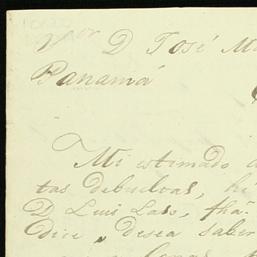 Sor D José Ma
Panamá
Mi estimado a
tas debueltas, hi
D Luis Laso, fha.
dice, desea saber